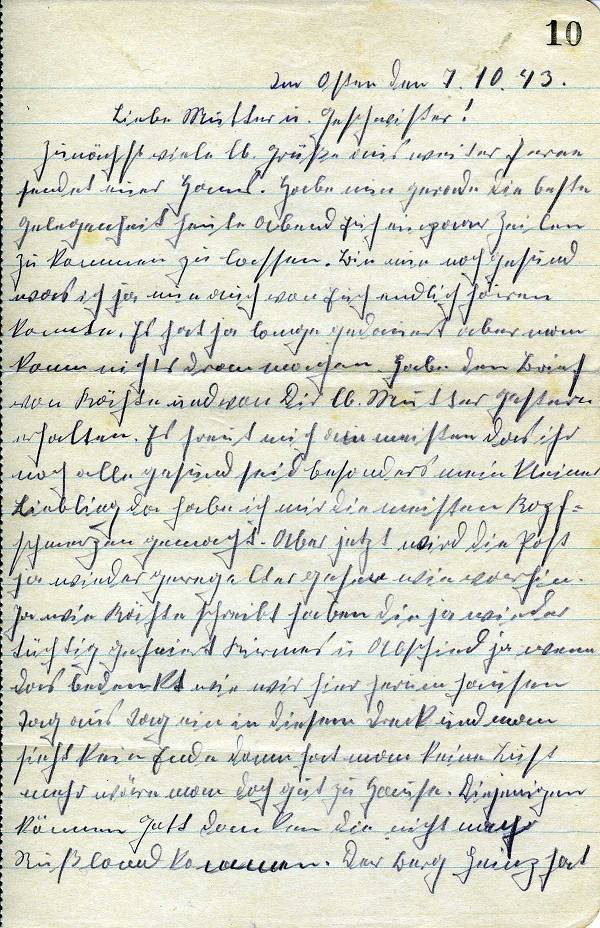 10
Im Osten den 7.10.43.
Liebe Mutter u. Geschwister!
Zunächst viele lb. Grüße aus weiter Ferne
sendet euer Hans. Habe nun gerade die beste
Gelegenheit heute Abend Euch ein paar Zeilen
zu kommen zu lassen. Bin nur noch gesund
was ich ja nun auch von Euch endlich hören
konnte. Es hat ja lange gedauert aber man
kann nichts dran machen. Habe den Brief
von Käthe und von Dir lb. Mutter gestern
erhalten. Es freut mich am meisten das ihr
noch alle gesund seid besonders mein kleiner
Liebling da habe ich mir die meisten Kopf=
schmerzen gemacht. Aber jetzt wird die Post
ja wieder geregelter gehen wie vorhin.
Ja wie Käthe schreibt haben die ja wieder
tüchtig gefeiert Kirmes u Abschied ja wenn
das bedenkt wie wir hier herum hausen
Tag aus Tag ein in diesem Dreck und man
sieht kein Ende dann hat man keine Lust
mehr wäre man doch gut zu Hause. Diejenigen
können Gott danken die nicht nach
Rußland kommen. Der Berg Heinz hat